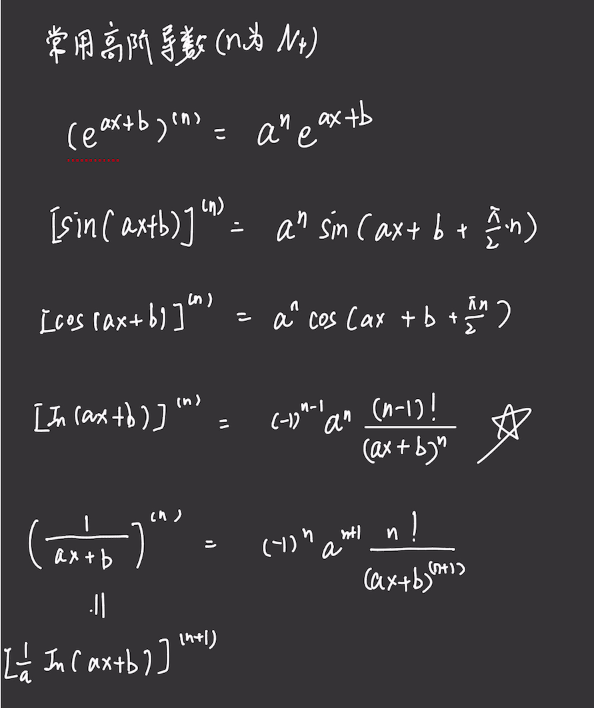 常用高阶导数(n为 N₊)
(e^{ax+b})^{(n)} = a^n e^{ax+b}
[sin(ax+b)]^{(n)} = a^n sin(ax+b+\frac{π}{2}·n)
[cos(ax+b)]^{(n)} = a^n cos(ax+b+\frac{πn}{2})
[In(ax+b)]^{(n)} = (-1)^{n-1} a^n \frac{(n-1)!}{(ax+b)^n} ☆
(\frac{1}{ax+b})^{(n)} = (-1)^n a^{n+1} \frac{n!}{(ax+b)^{(n+1)}}
||
[\frac{1}{a} In(ax+b)]^{(n+1)}